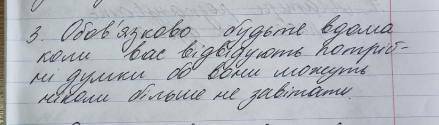 3. Обов'язково будьте вдома
коли вас відвідують потріб-
ні думки бо вони можуть
ніколи більше не завітати.